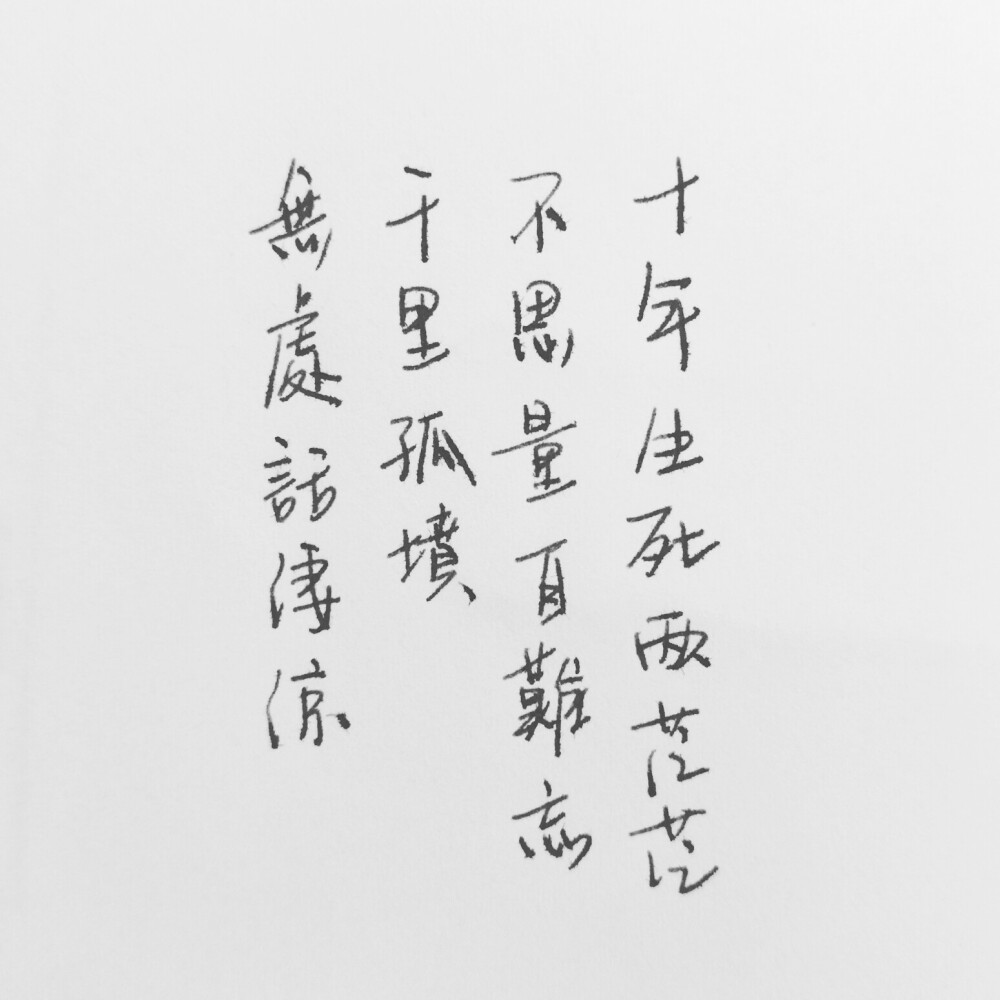 十年生死兩茫茫
不思量自難忘
千里孤墳
無處話淒涼